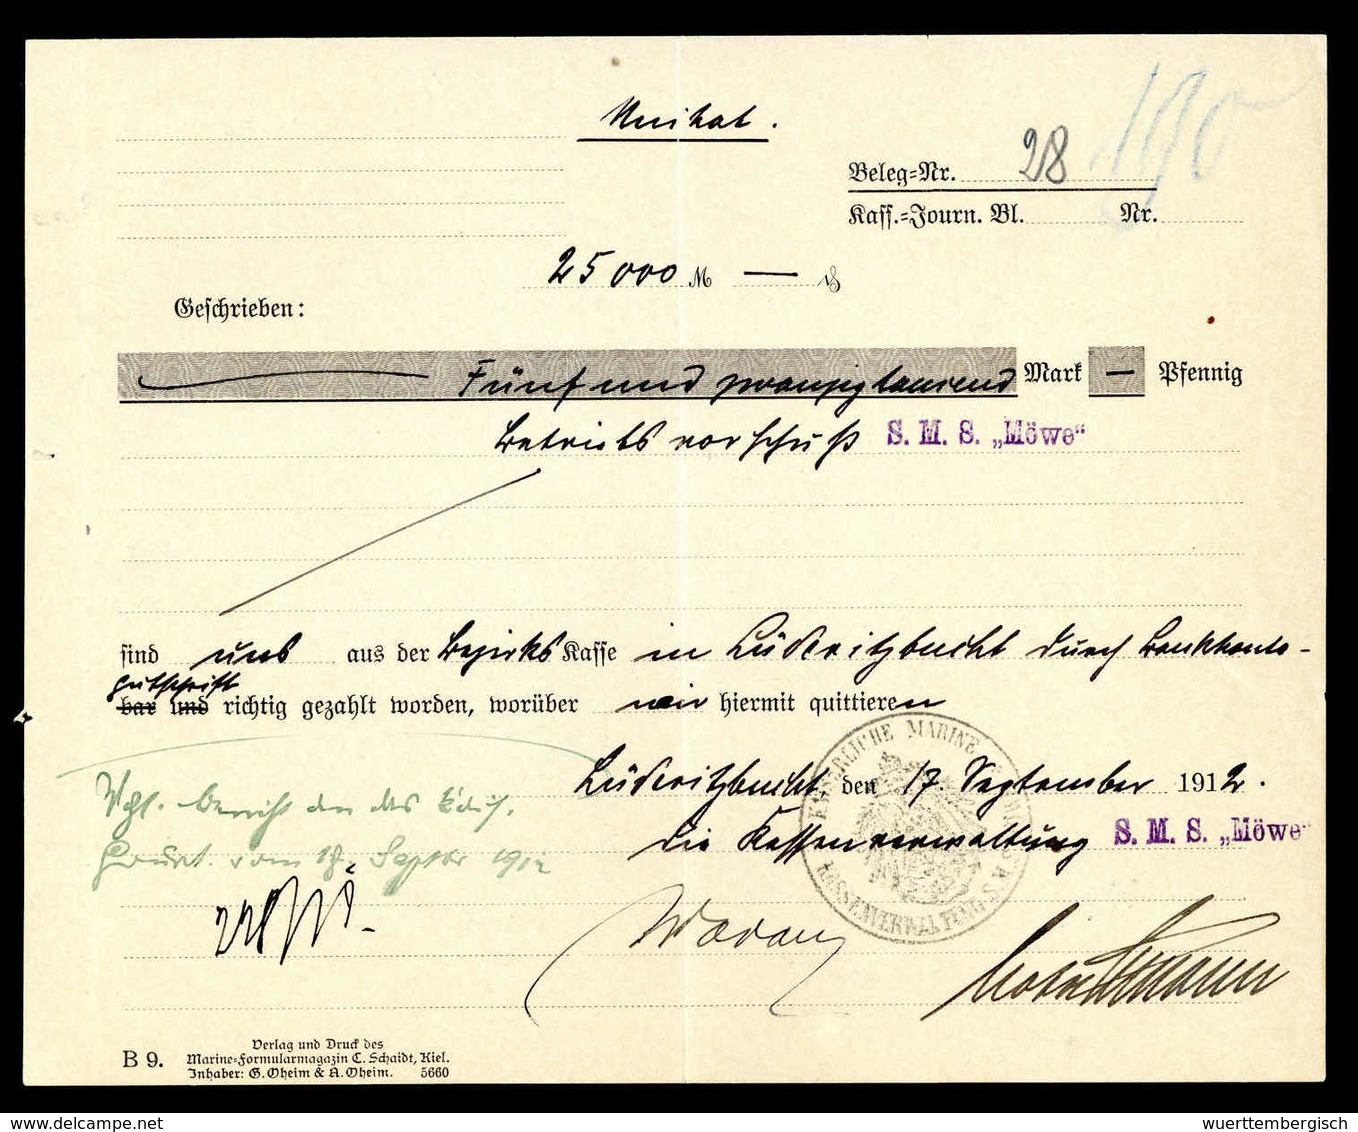 Unikat.
Beleg=Nr. 28
Kass.=Journ. Bl. Nr.
25 000 M —
Geschrieben:
Fünf und zwanzigtausend Mark — Pfennig
Betriebsvorschuß S. M. S. „Möwe“
sind uns aus der Bezirks Kasse in Lüderitzbucht durch Bankkonto-
gutschrift
bar und richtig gezahlt worden, worüber wir hiermit quittieren
Lüderitzbucht, den 17. September 1912.
Die Kassenverwaltung S. M. S. „Möwe“
KAISERLICHE MARINE
KASSENVERWALTUNG S.M.S.
vom 18. Septbr 1912
B 9.
Verlag und Druck des
Marine=Formularmagazin C. Schaidt, Kiel.
Inhaber: G. Oheim & A. Oheim. 5660
delcampe.net
wuerttembergisch